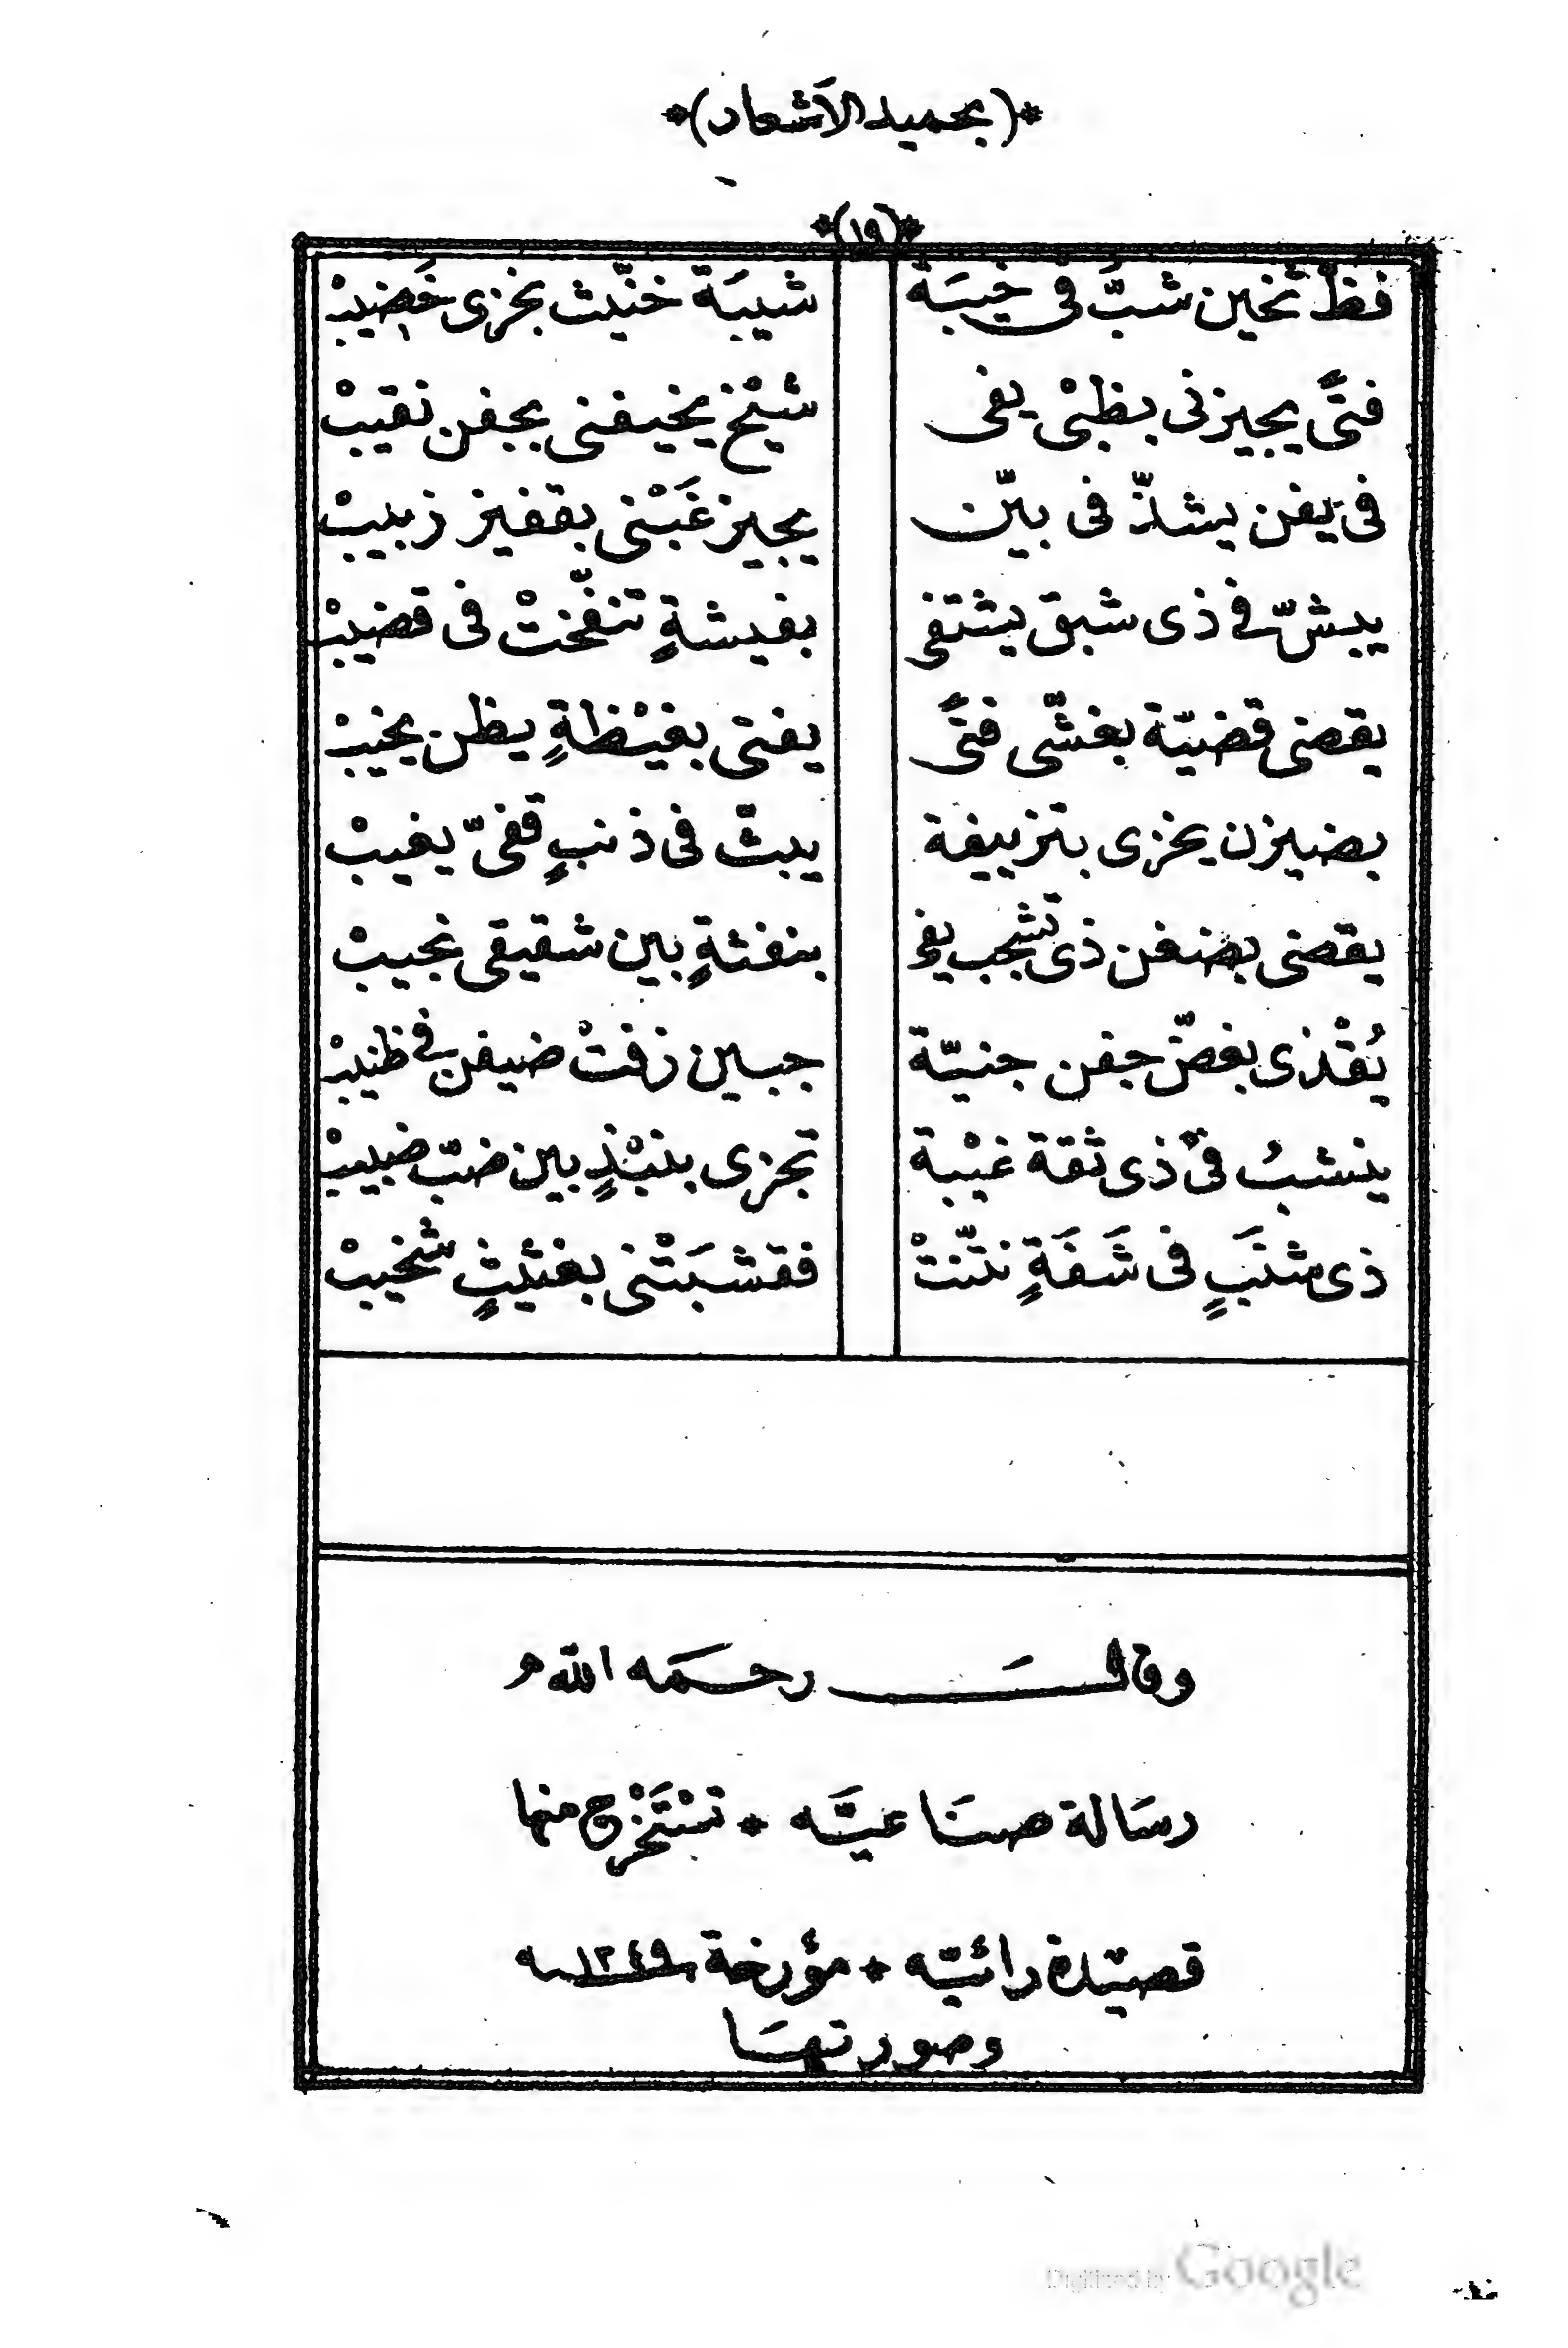 *(بحميد الاَشعار)*
*(١٩)*
فظّ ثخين شبَّ في خيبَة شيبَة خنّيث بخزى خَضيبْ
فتًى يجيزنى بظبْى يفى شيْخ يخيفنى بجفن نقيبْ
فى يفن يشذّ فى بيّن يجيز غَبْنى بقفيز زبيبْ
يبشّ فى ذى شبق يشتفى بفيشةٍ تنفّختْ فى قضيبْ
يقضى قضيّة بغشّى فتًى يفتى بغيْظةٍ يظن يخيبْ
بضيزن يخزى بتزييفة يبثّ فى ذنبٍ قفىّ يغيبْ
يقضى بضغن ذى تشجب يفى بنفثةٍ بين شقيقى نجيبْ
يُقْذى بغضّ جفن جنيّة جبين زفتْ ضيفن في ظنيبْ
ينشبُ فى ذى ثقة غيْبة تجزى بنبْذٍ بين ضبّ ضبيبْ
ذى شنَبٍ فى شَفَةٍ نتّنتْ فقشبَتْنى بغثيثٍ شخيبْ
وقالَ رحمَه الله
رسَالة صنَاعيَّه * تسْتَخْرج منها
قصيْدة رائيّه * مؤرخة ١٢٤٩سنه
وصورتهَا
Digitized by Google